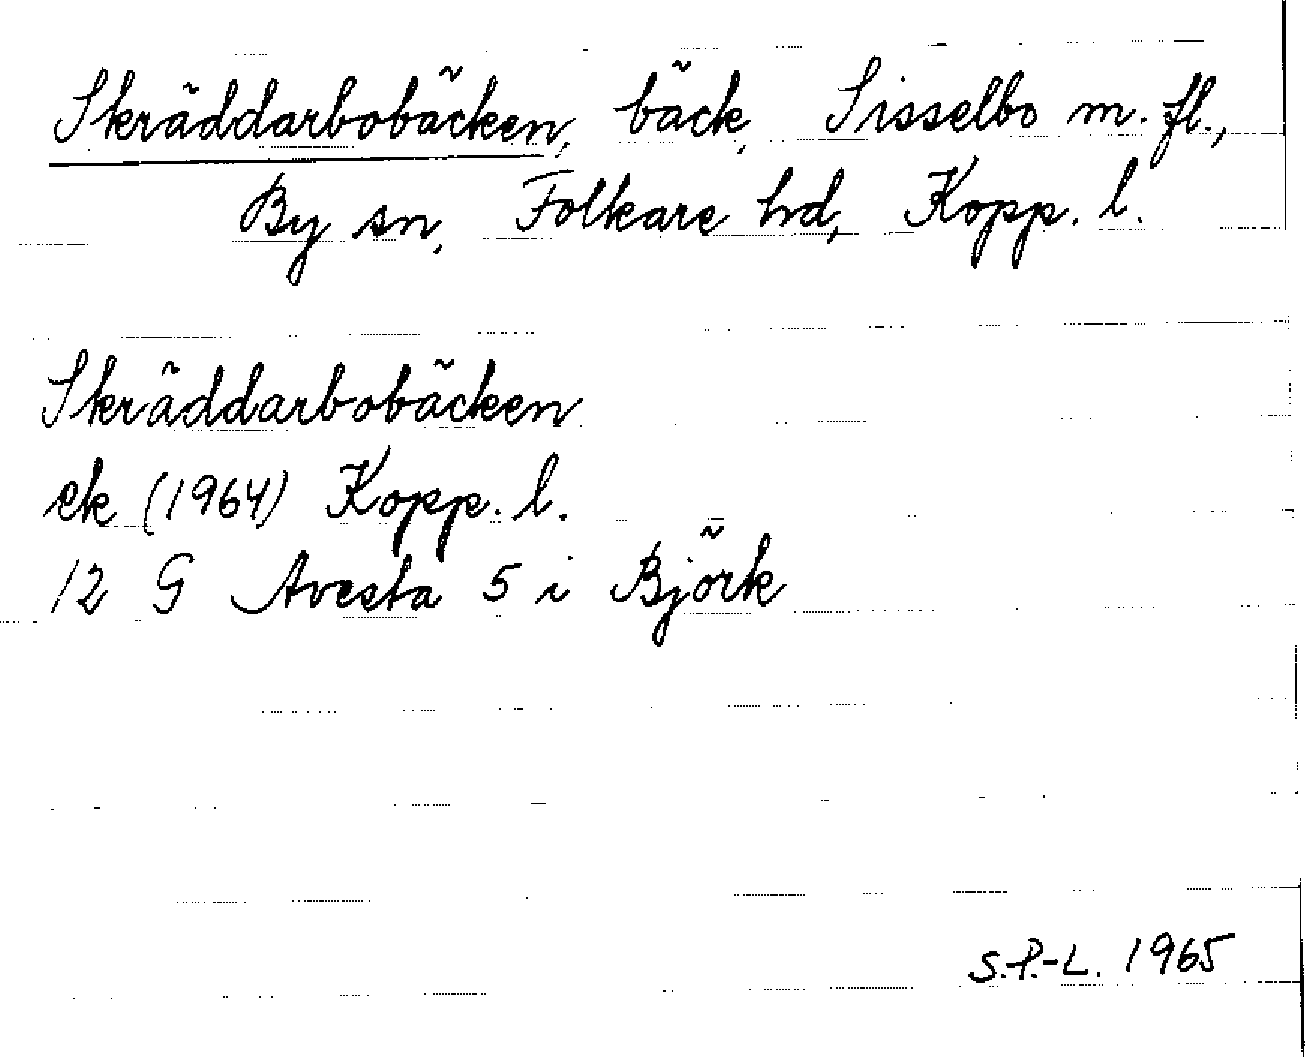 Skräddarbobäcken, bäck, Sisselbo m. fl.,
By sn, Folkare hd, Kopp. l.
Skräddarbobäcken
ek (1964) Kopp. l.
12 G Avesta 5 i Björk
S.P.-L. 1965